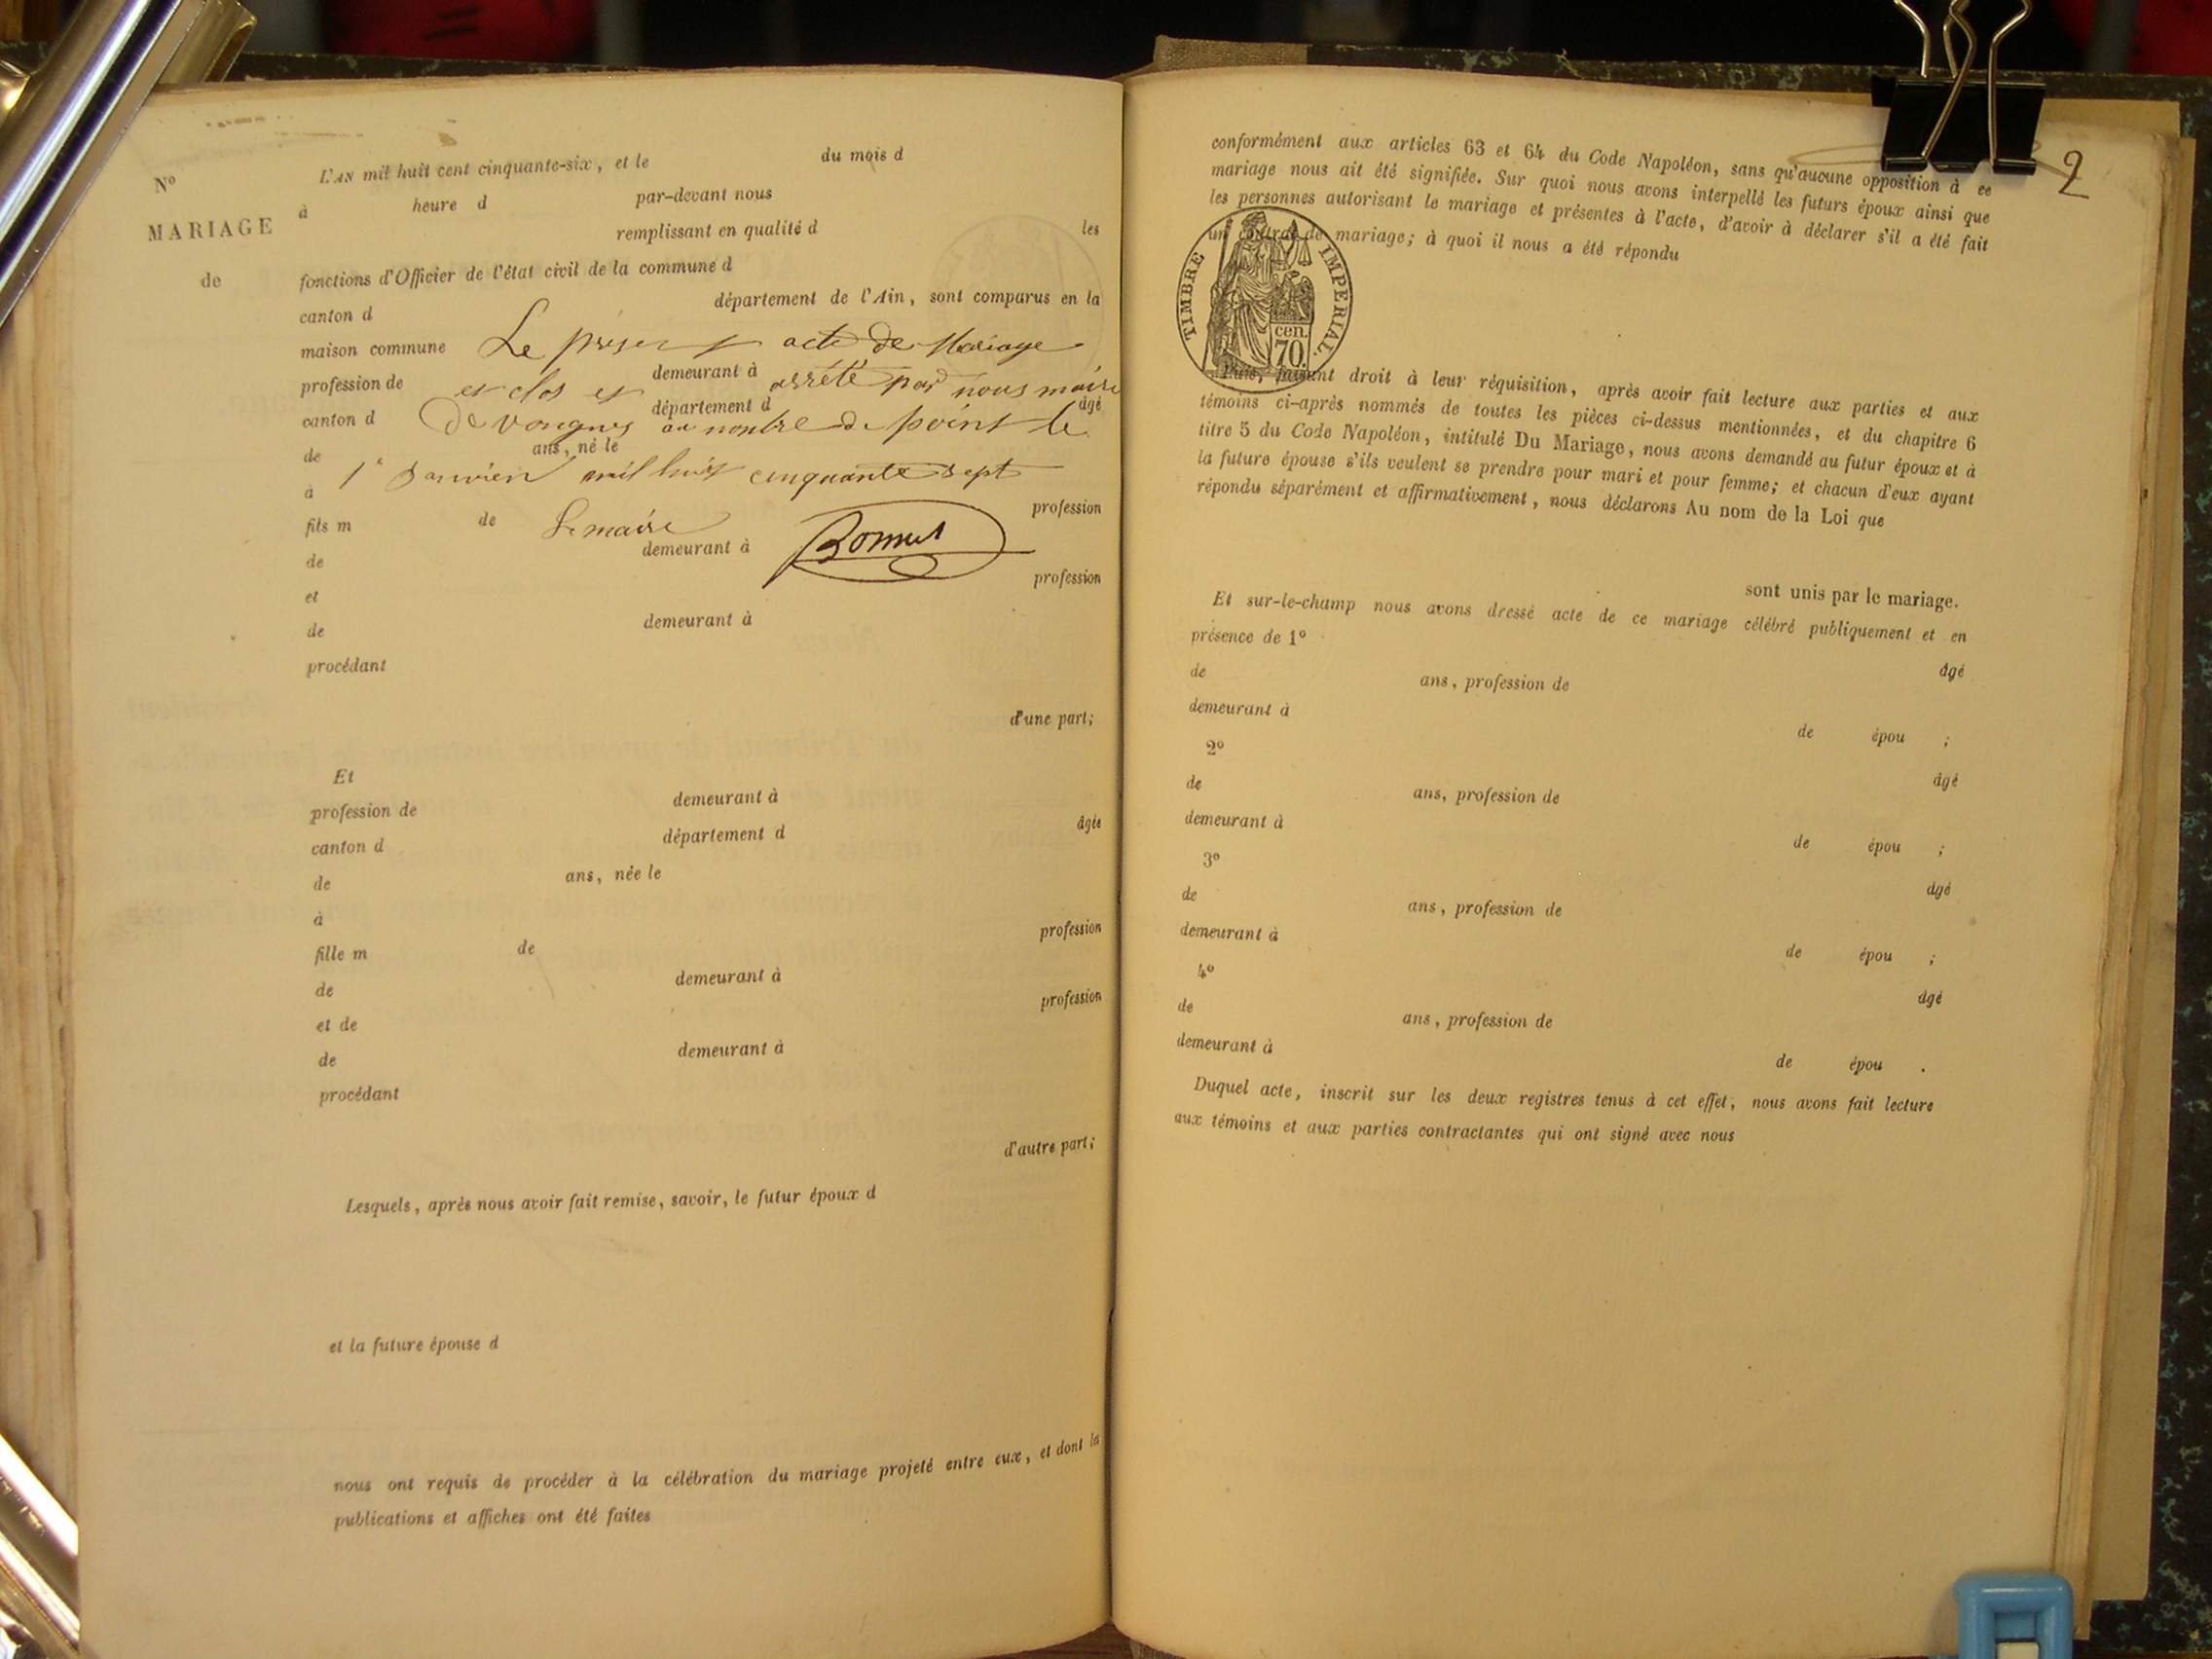 N°
MARIAGE
de
L'AN mil huit cent cinquante-six, et le du mois d
à heure d par-devant nous
remplissant en qualité d les
fonctions d'Officier de l'état civil de la commune d
canton d département de l'Ain, sont comparus en la
maison commune Le présent acte de Mariage
profession de demeurant à
est clos et arrêté par nous maire
canton d département d âgé
de vongnes au nombre de point le
de ans, né le
à 1er Janvier mil huit cinquante sept
fils m de profession
Le maire
de demeurant à
et profession
de demeurant à
procédant
d'une part;
Et
profession de demeurant à
canton d département d âgée
de ans, née le
à
fille m de profession
de demeurant à
et de profession
de demeurant à
procédant
d'autre part;
Lesquels, après nous avoir fait remise, savoir, le futur époux d
et la future épouse d
nous ont requis de procéder à la célébration du mariage projeté entre eux, et dont la
publications et affiches ont été faites
2
conformément aux articles 63 et 64 du Code Napoléon, sans qu'aucune opposition à ce
mariage nous ait été signifiée. Sur quoi nous avons interpellé les futurs époux ainsi que
les personnes autorisant le mariage et présentes à l'acte, d'avoir à déclarer s'il a été fait
un contrat de mariage; à quoi il nous a été répondu
TIMBRE IMPERIAL.
cen.
70.
Puis, faisant droit à leur réquisition, après avoir fait lecture aux parties et aux
témoins ci-après nommés de toutes les pièces ci-dessus mentionnées, et du chapitre 6
titre 5 du Code Napoléon, intitulé Du Mariage, nous avons demandé au futur époux et à
la future épouse s'ils veulent se prendre pour mari et pour femme; et chacun d'eux ayant
répondu séparément et affirmativement, nous déclarons Au nom de la Loi que
sont unis par le mariage.
Et sur-le-champ nous avons dressé acte de ce mariage célébré publiquement et en
présence de 1° âgé
de ans, profession de
demeurant à de épou ;
2° âgé
de ans, profession de
demeurant à de épou ;
3° âgé
de ans, profession de
demeurant à de épou ;
4° âgé
de ans, profession de
demeurant à de épou .
Duquel acte, inscrit sur les deux registres tenus à cet effet, nous avons fait lecture
aux témoins et aux parties contractantes qui ont signé avec nous